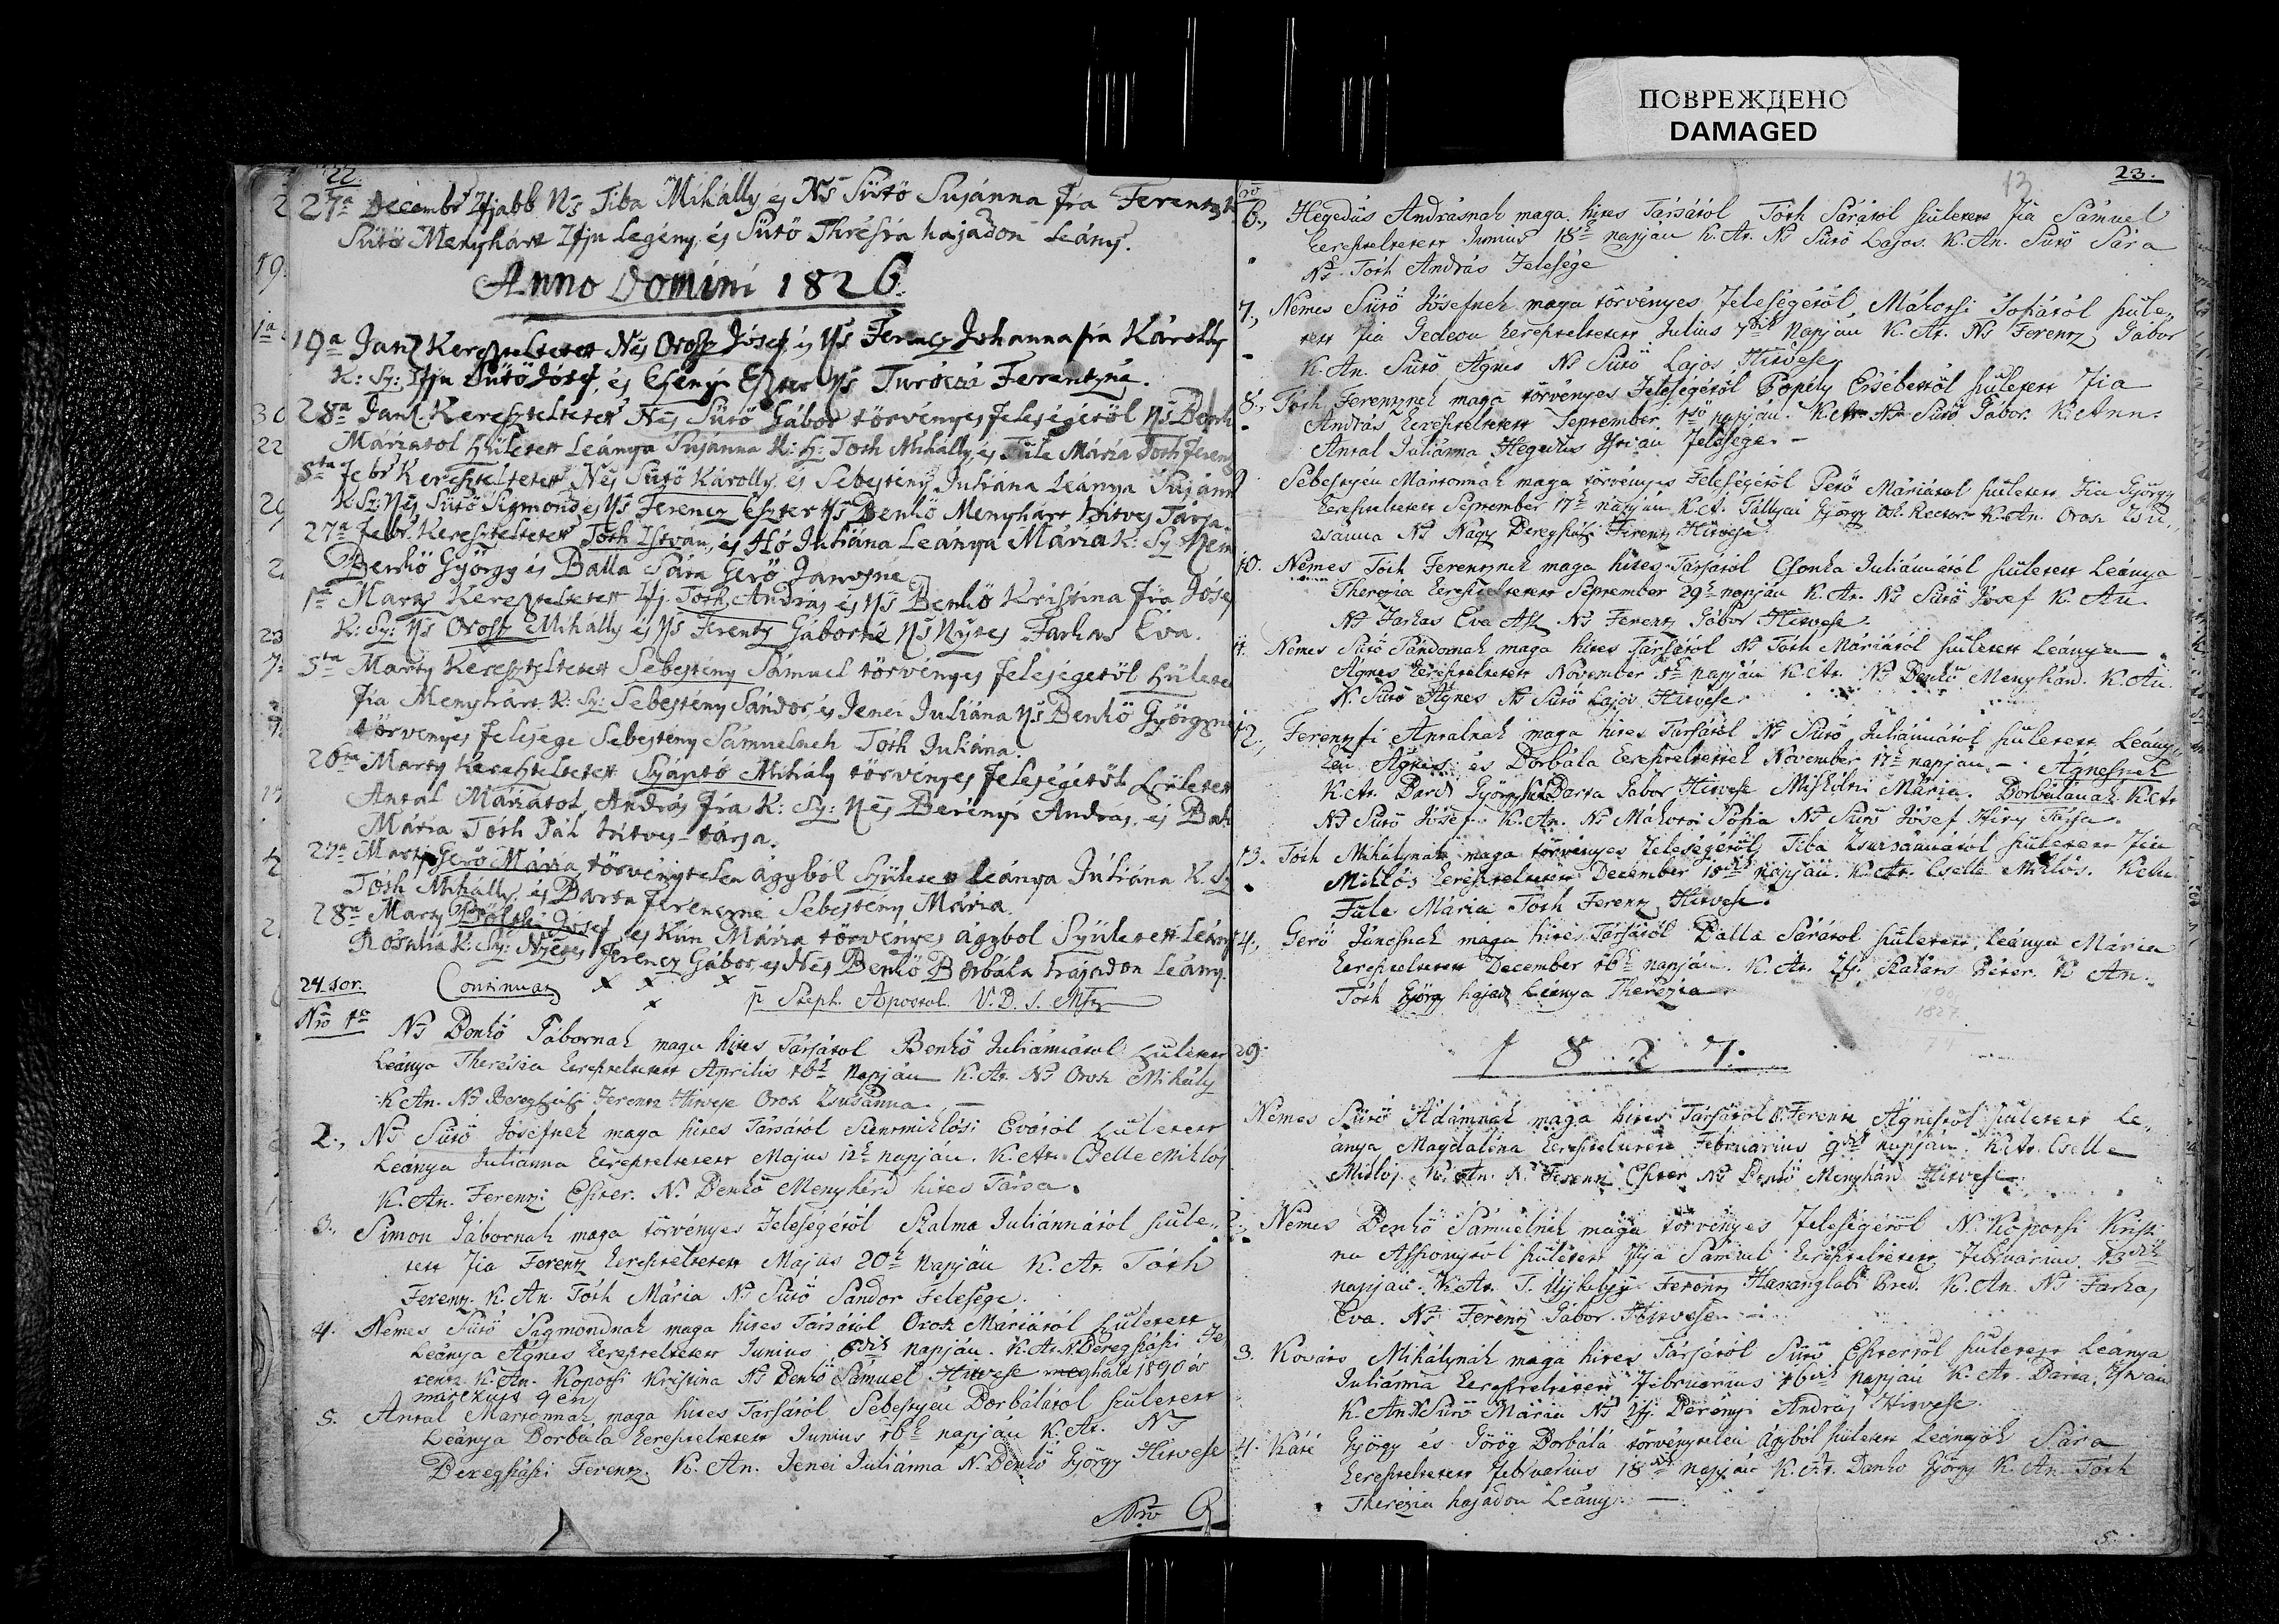 ПОВРЕЖДЕНО
DAMAGED
22.
27a Decembr Ifjabb Ns Tiba Mihálly és Ns Sütö Susánna fia Ferentz
Sütö Menyhárt Ifju Legény és Sütö Thrésia hajadon Leány.
Anno Domini 1826.
19a Jan Kereszteltetett Nēs Orosz Jósef és Ns Ferencz Johanna fia Károlly
K: Sz: Ifju Sütö Jósef, és Esenyi Eszter Ns Turóczi Ferentzné.
28a Jan. Kereszteltetett Nēs Sütö Gábor törvényes feleségétöl Ns Benk
Máriátol született Leánya Susánna K: Sz: Toth Mihálly és Füle Mária Toth Ferenc
Febr Kereszteltetett Nēs Sütö Károlly és Sebestény Juliána Leánya Susánn
K: Sz: Nēs Sütö Sigmond és Ns Ferencz Eszter Ns Benkö Menyhárt hitves Társa.
27a Febr. Kereszteltetett Tóth István, és Hó Juliána Leánya Mária K: Sz Nem
Benkö György és Balla Sára Gerö Jánosné
1a Martz Kereszteltetett Ifj. Toth András és Ns Benkö Kristina fia Jósef
K: Sz: Ns Orosz Mihálly és Ns Ferentz Gáborné Ns Nytes Farkas Éva.
5ta Martz Kereszteltetett Sebestény Sámuel törvényes feleségétöl Született
fia Menyhárt K: Sz: Sebestény Sándor, és Jenei Juliána Ns Benkö Györgyné
törvényes felesége Sebestény Sámuelneh Tóth Juliána.
26ta Martz Kereszteltetett Szántó Mihály törvényes feleségétöl Született
Antal Máriátol András fia K: Sz: Nēs Berényi Andras, és Bak
Mária Tóth Pál hitves-társa.
27a Martz Gerö Mária törvénytelen ágyból Született leánya Juliána K. Sz
Tóth Mihálly és Barta Ferencné Sebestény Mária.
28a Martz Jósef és Kun Mária törvényes ágybol Született Leány
Rosália K: Sz: Nytes Ferencz Gábor, és Nēs Benkö Borbála hajadon Leány.
24 sor. Continuat x x x
x p Steph. Apostol. V. D. I. Mstr
Nro 1o Ns Benkö Gábornak maga hites Társátol Benkö Juliánnátol született
Leánya Therésia kereszteltetett Aprilis 16k Napján K. At. Ns Orosz Mihály
K. An. Ns Beregszászi Ferentz Hitvese Orosz Zsusánna.
2., Ns Sütö Jósefnek maga hites Társátol Szentmiklósi Évátol született
Leánya Juliánna kereszteltetett Majus 12k napján. K. At. Cselle Miklos
K. An. Ferentzi Eszter. N. Benkö Menyhérd hites Társa.
3., Simon Gábornak maga törvényes Feleségétöl Szalma Juliánnátol szüle,,
tett Fia Ferentz kereszteltetett Majus 20k Napján K. At. Tóth
Ferentz. K. An. Tóth Mária Ns Sütö Sándor Felesége.
4. Nemes Sütö Sigmondnak maga hites Társátol Orosz Máriátol született
Leánya Ágnes kereszteltetett Junius 6dik napján. K. At. N. Beregszászi Fe,,
rentz K. An. Koporsi Kristina Ns Benkö Sámuel Hitvese meghalt 1890 év
márczius 9 én
5. Antal Mártonnak maga hites Társától Sebestyén Borbálátol született
Leánya Borbála kereszteltetett Junius 16k napján K. At. Ns
Beregszászi Ferentz. K. An. Jenei Juliánna N. Benkö György Hitvese
Nro 6
13
23.
6., Hegedüs Andrásnak maga hites Társátol Tóth Sárátol született fia Sámuel
kereszteltetett Junius 18k napján K. At. Ns Sütö Lajos. K. An. Sütö Sára
Ns Tóth András Felesége
7., Nemes Sütö Jósefnek maga törvényes Feleségétöl Mákotsi Sofiátol szüle,,
tett Fia Gedeon kereszteltetett Julius 7dik Napján K. At. Ns Ferentz Gábor
K. An. Sütö Ágnes Ns Sütö Lajos Hitvese
8., Tóth Ferentznek maga törvényes Feleségétöl Popély Ersébettöl született Fia
András kereszteltetett September 1sö napján. K. At. Ns Sütö Gábor. K. Ann.
Antal Juliánna Hegedüs István Felesége. -
9 Sebestyén Mártonnak maga törvényes Feleségétöl Petö Máriátol született Fia György
kereszteltetett September 17k napján K. At. Tállyai György Osk. Rector K. An. Orosz Zsu,,
zsánna Ns Nagy Beregszászi Ferentz Hitvese
10. Nemes Tóth Ferentznek maga hites Társától Csonka Juliánnátol született Leánya
Therézia kereszteltetett September 29k napján K. At. Ns Sütö Jósef K. An.
Ns Farkas Éva Asz Ns Ferentz Gábor Hitvese.
11. Nemes Sütö Sándornak maga hites Társátol Ns Tóth Máriátol született Leánya
Ágnes kereszteltetett November 5k napján K. At. Ns Benkö Menyhárd. K. An.
N. Sütö Ágnes Ns Sütö Lajos Hitvese
12., Ferentzfi Antalnak maga hites Társátol Ns Sütö Juliánnátol született Leány,,
kei Ágnes és Borbála kereszteltettek November 17k napján. - Ágnesnek
K. At. Bardi György Barta Gábor Hitvese Miskóltzi Mária. Borbálának K. At
Ns Sütö Jósef K. An. Ns Mákotsi Sófia Ns Sütö Jósef Hitv Társa.
13. Tóth Mihálynak maga törvényes Feleségétöl Tiba Zsuzsánnátol született Fia
Miklós kereszteltetett December 18dik Napján. K. At. Cselle Miklós. K. An.
Füle Mária Tóth Ferentz Hitvese.
14., Gerö Jánosnak maga hites Társátol Balla Sárátol született Leánya Mária
kereszteltetett December 26k napján. K. At. Ifj. Szakáts Péter. K An.
Tóth György hajad Leánya Therézia
1827.
1827.
Nemes Sütö Ádámnak maga hites Társátol Ferentz Ágnestöl született Le,,
ánya Magdaléna kereszteltetett Februarius 9dik napján. K. At. Cselle
Miklós. K. An. N. Ferentz Eszter Ns Benkö Menyhárd Hitvese
2., Nemes Benkö Sámuelnek maga törvényes Feleségétöl N. Koporsi Kristi
na Asszonytol született Fija Sámuel kereszteltetett Februarius 13dik
napján. K. At. T. Ujhelyji Ferentz Haranglabi Pred. K. An. Ns Farkas
Éva. Ns Ferentz Gábor Hitvese. -
3. Kováts Mihálynak maga hites Társától Sütö Esztertöl született Leánya
Juliánna kereszteltetett Februarius 16dik Napján K. At. Barta István
K. An. N. Sütö Mária Ns Ifj. Berényi András Hitvese.
4. Káté György és Görög Borbálá törvénytelen ágyból született Leányok Sára
kereszteltetett Februarius 18dik Napján K. At. Danko György K. An. Tóth
Therézia hajadon Leány. -
5.